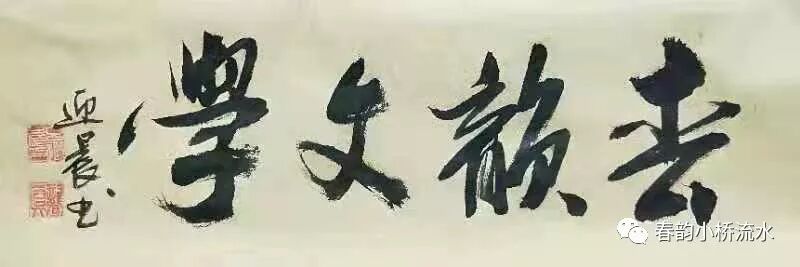 春韵文學
迎晨书
春韵小桥流水